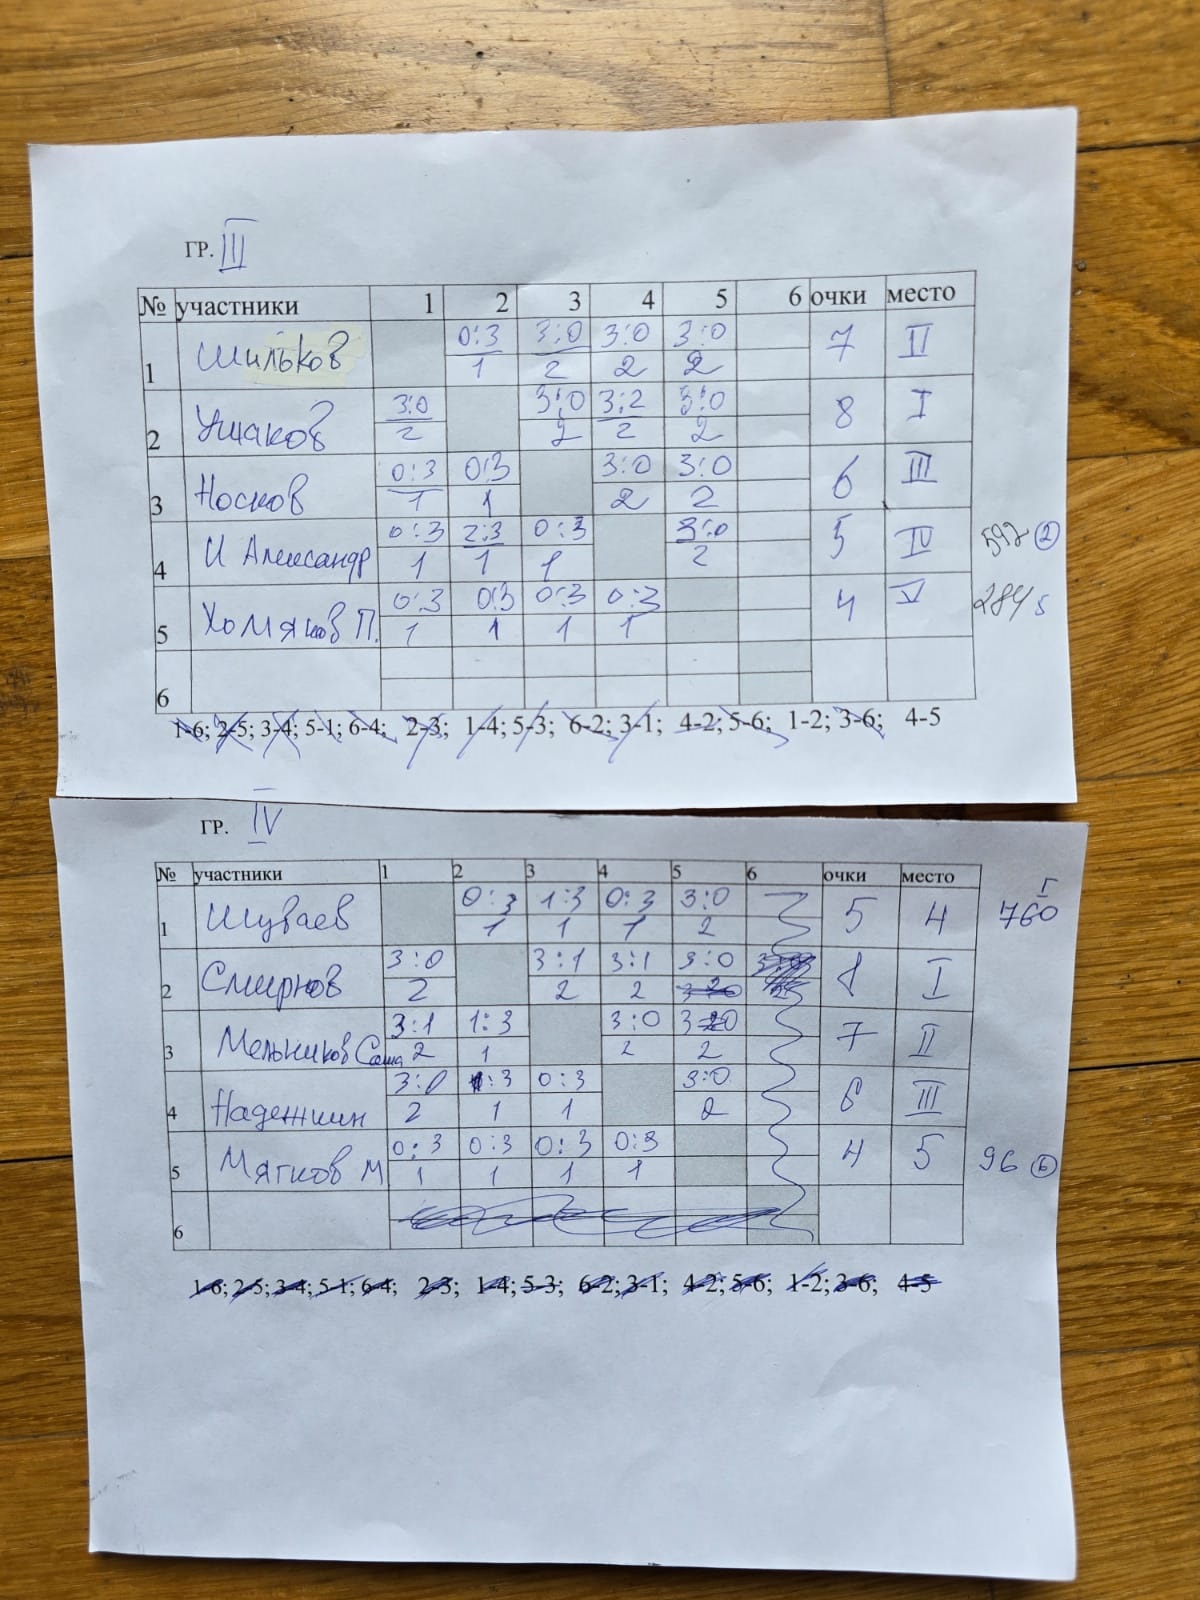 ГР. III
№ участники 1 2 3 4 5 6 очки место
1 Шильков 0:3 3:0 3:0 3:0 7 II
1 2 2 2
2 Ушаков 3:0 3:0 3:2 3:0 8 I
2 2 2 2
3 Носков 0:3 0:3 3:0 3:0 6 III
1 1 2 2
4 И Александр 0:3 2:3 0:3 3:0 5 IV 592 2
1 1 1 2
5 Хомяков П. 0:3 0:3 0:3 0:3 4 V 284 5
1 1 1 1
6
1-6; 2-5; 3-4; 5-1; 6-4; 2-3; 1-4; 5-3; 6-2; 3-1; 4-2; 5-6; 1-2; 3-6; 4-5
ГР. IV
№ участники 1 2 3 4 5 6 очки место
1 Шуваев 0:3 1:3 0:3 3:0 5 4 760
1 1 1 2
2 Смирнов 3:0 3:1 3:1 3:0 8 I
2 2 2
3 Мельников Саша 3:1 1:3 3:0 3:0 7 II
2 1 2 2
4 Надежкин 3:0 1:3 0:3 3:0 6 III
2 1 1 2
5 Мягков М 0:3 0:3 0:3 0:3 4 5 96 6
1 1 1 1
6
1-6; 2-5; 3-4; 5-1; 6-4; 2-3; 1-4; 5-3; 6-2; 3-1; 4-2; 5-6; 1-2; 3-6; 4-5